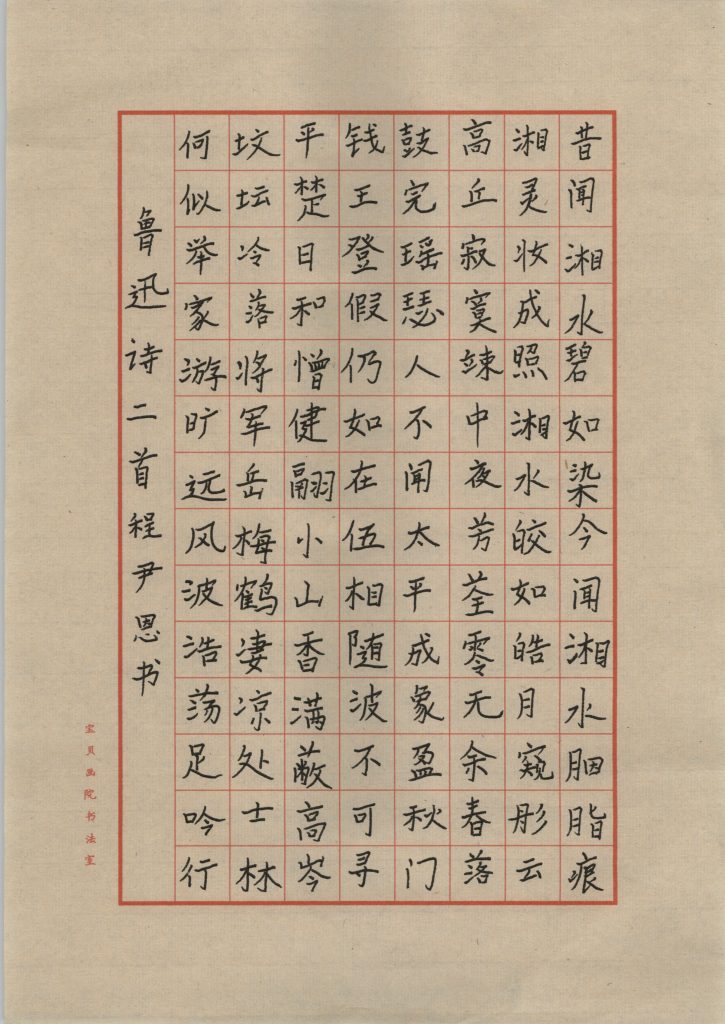 昔闻湘水碧如染今闻湘水胭脂痕
湘灵妆成照湘水皎如皓月窥彤云
高丘寂寞竦中夜芳荃零无余春落
鼓完瑶瑟人不闻太平成象盈秋门
钱王登假仍如在伍相随波不可寻
平楚日和憎健翮小山香满蔽高岑
坟坛冷落将军岳梅鹤凄凉处士林
何似举家游旷远风波浩荡足吟行
鲁迅诗二首程尹恩书
宝贝画院书法室